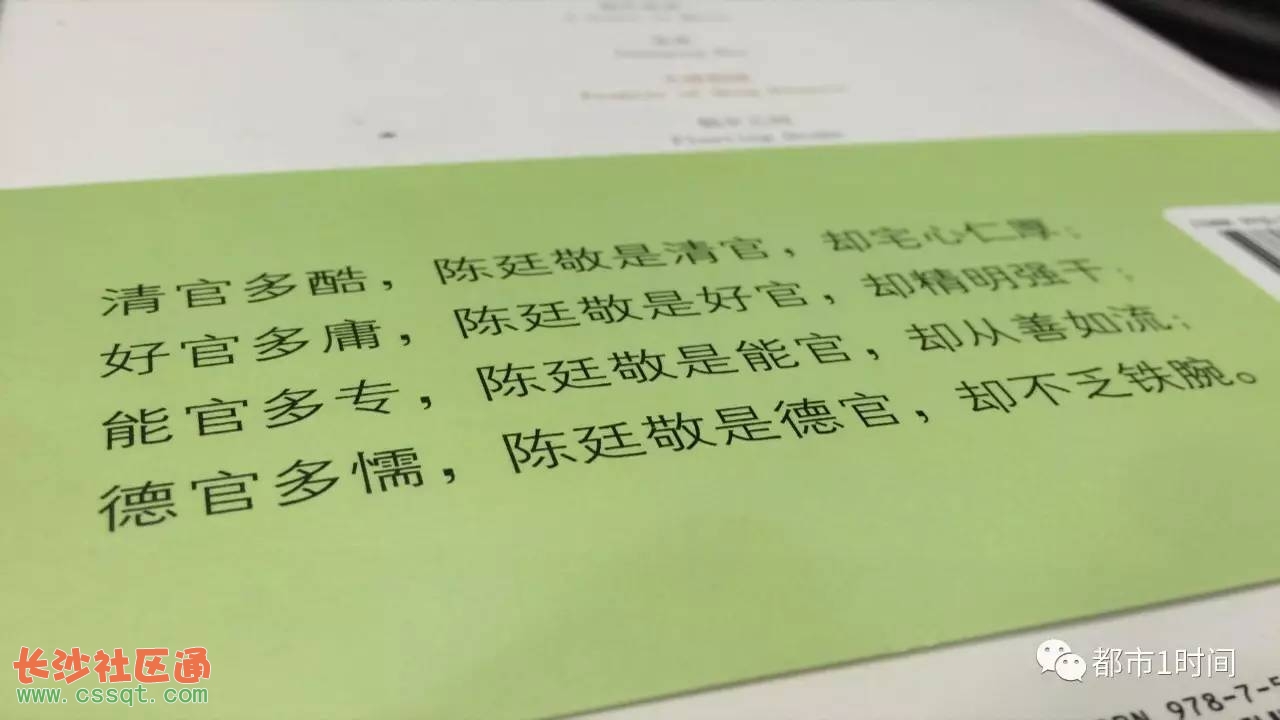 清官多酷，陈廷敬是清官，却宅心仁厚；
好官多庸，陈廷敬是好官，却精明强干；
能官多专，陈廷敬是能官，却从善如流；
德官多懦，陈廷敬是德官，却不乏铁腕。
长沙社区通
www.cssqt.com
都市1时间
978-7-5